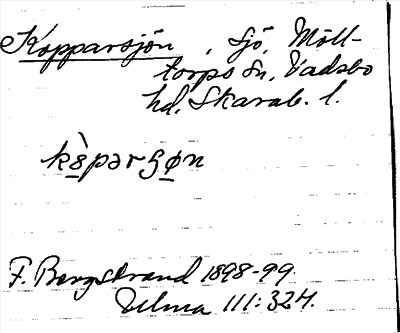 Kopparsjön, Sjö, Möll-
torps sn, Vadsbo
hd. Skarab. l.
kὸ̱pərʂø̱n
F. Bergstrand 1898-99.
Ulma 111:324.